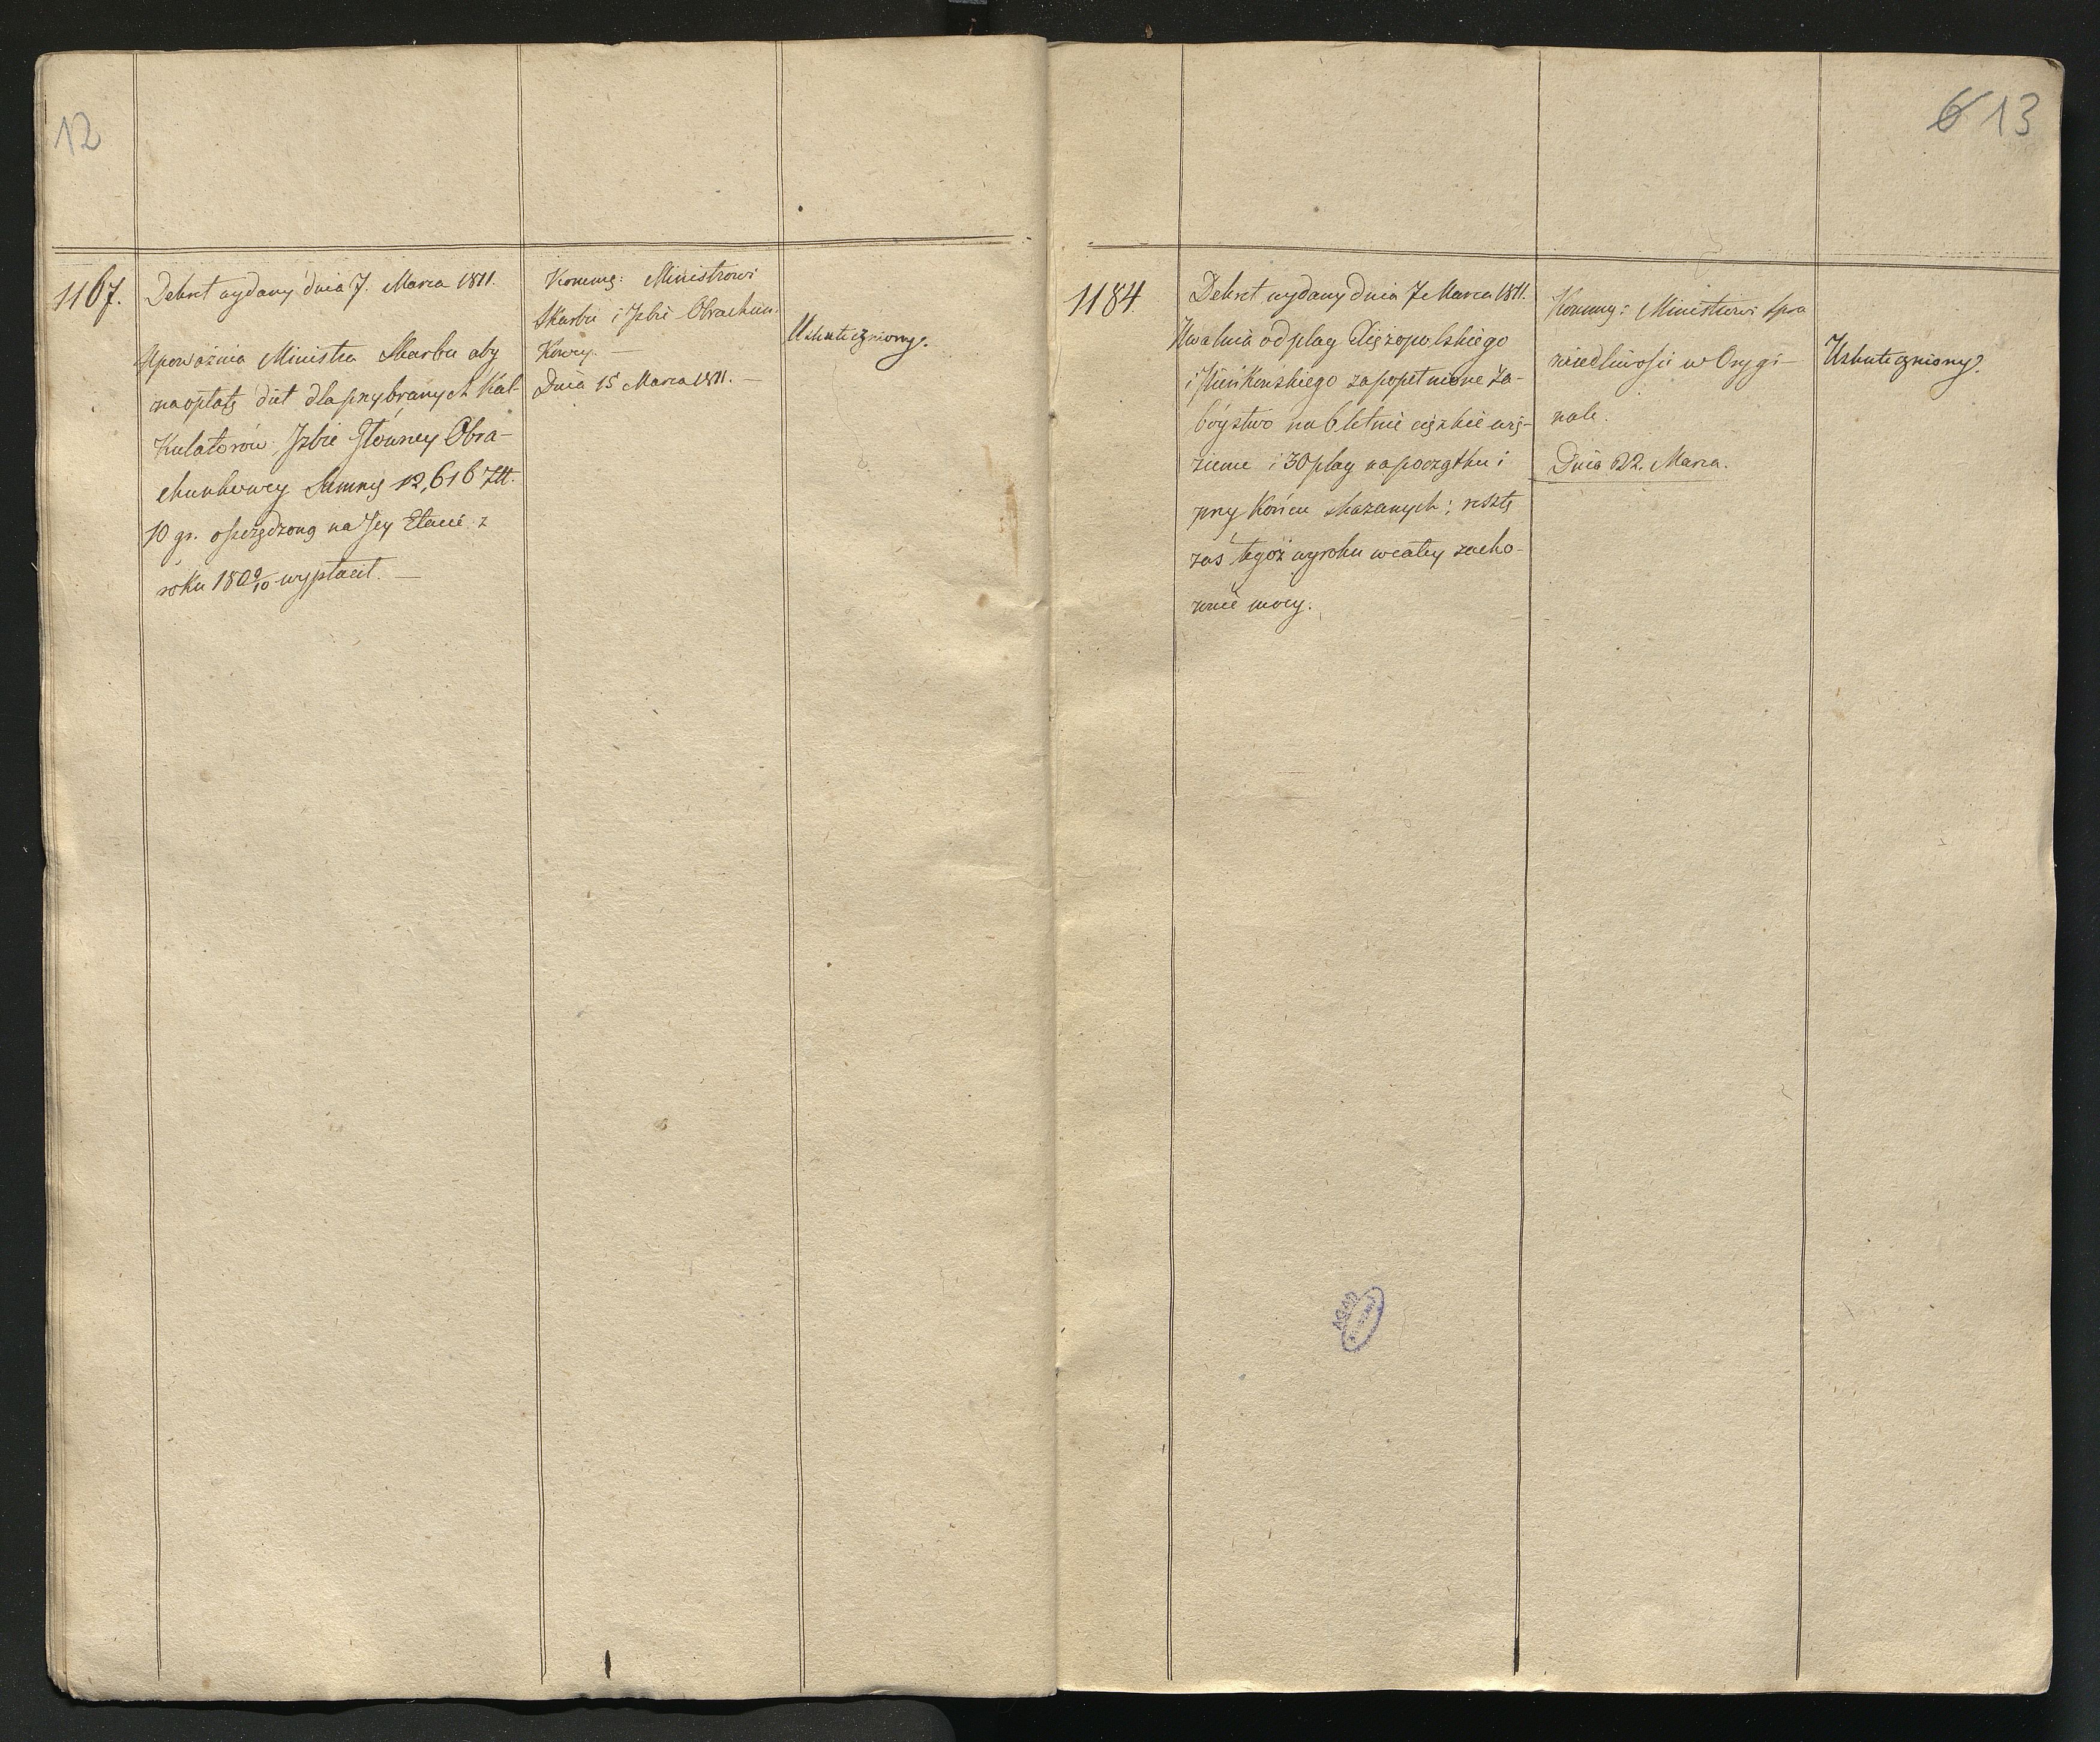 12
1167.
Dekret wydany dnia 7. Marca 1811.
Upoważnia Ministra Skarbu aby
na opłatę diet dla przybranych Kal-
kulatorów Izbie Głowney Obra-
chunkowey Summę 12,616 Złł.
10 gr. oszczędzoną na Jey Etacie z
roku 1809/10 wypłacił. —
Kommg: Ministrowi
Skarbu i Izbie Obrachun:
Kowey. —
Dnia 15 Marca 1811. —
Uskuteczniony.
6 13
1184.
Dekret wydany dnia 7 Marca 1811.
Uwalnia od plag Ciężopolskiego
i zapopełnione Za-
bóystwo na 6 letnie ciężkie wię-
zienie i 30 plag na początku i
przy Końcu skazanych; resztę
zaś tegoż wyroku wcałey zacho-
wuie mocy.
Kommg: Ministrowi Spra
wiedliwości w Orygi-
nale.
Dnia 22. Marca.
Uskuteczniony
AGAD